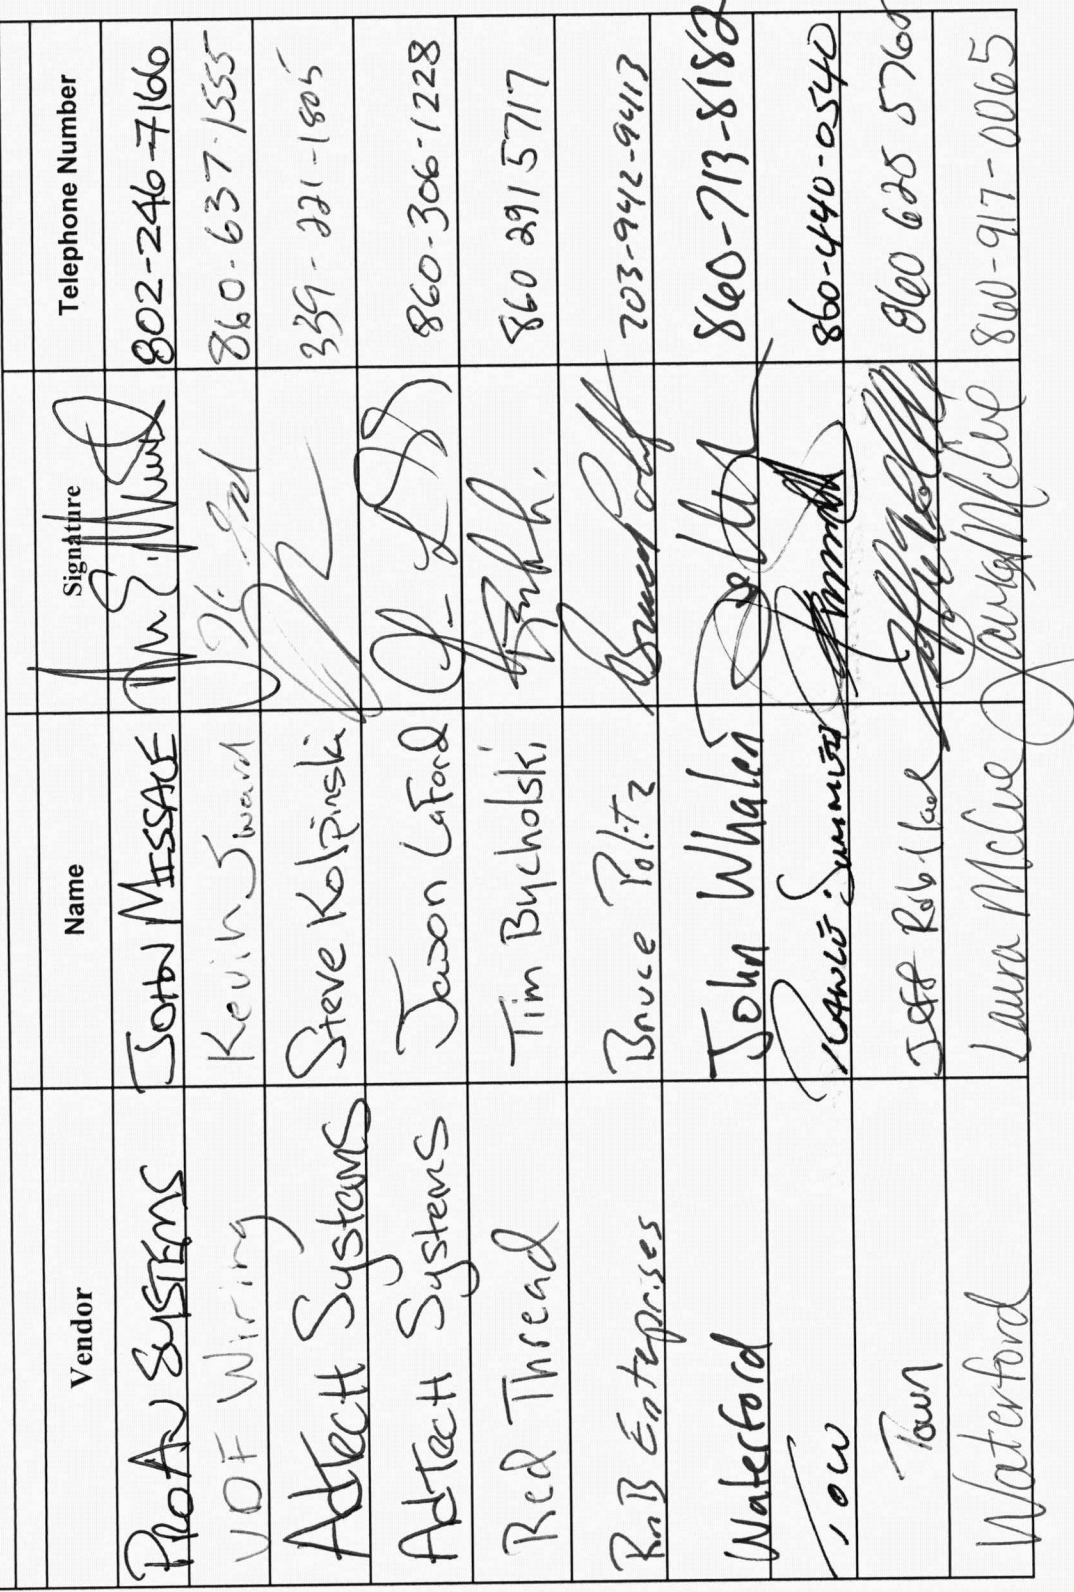 Vendor Name Signature Telephone Number
ProAV Systems John Missale 802-246-7166
VDF Wiring Kevin 860-637-1555
AdTech Systems Steve Kolpinski 339-221-1805
AdTech Systems Jason LaFord 860-306-1228
Red Thread Tim Bycholski 860 291 5717
RnB Enteprises Bruce Politz 203-942-9413
Waterford John Whalen 860-713-8182
TOW 860-440-0540
Town Jeff 860 625 5760
Waterford Laura McCue Laura McCue 860-917-0065